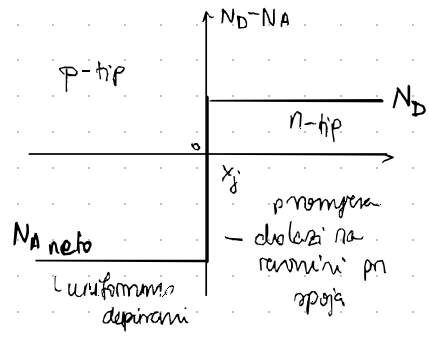 N_D-N_A
p-tip
N_D
n-tip
0
x_j
N_A neto
promjena
- dolazi na
ravnini pn
spoja
uniformno
dopirani